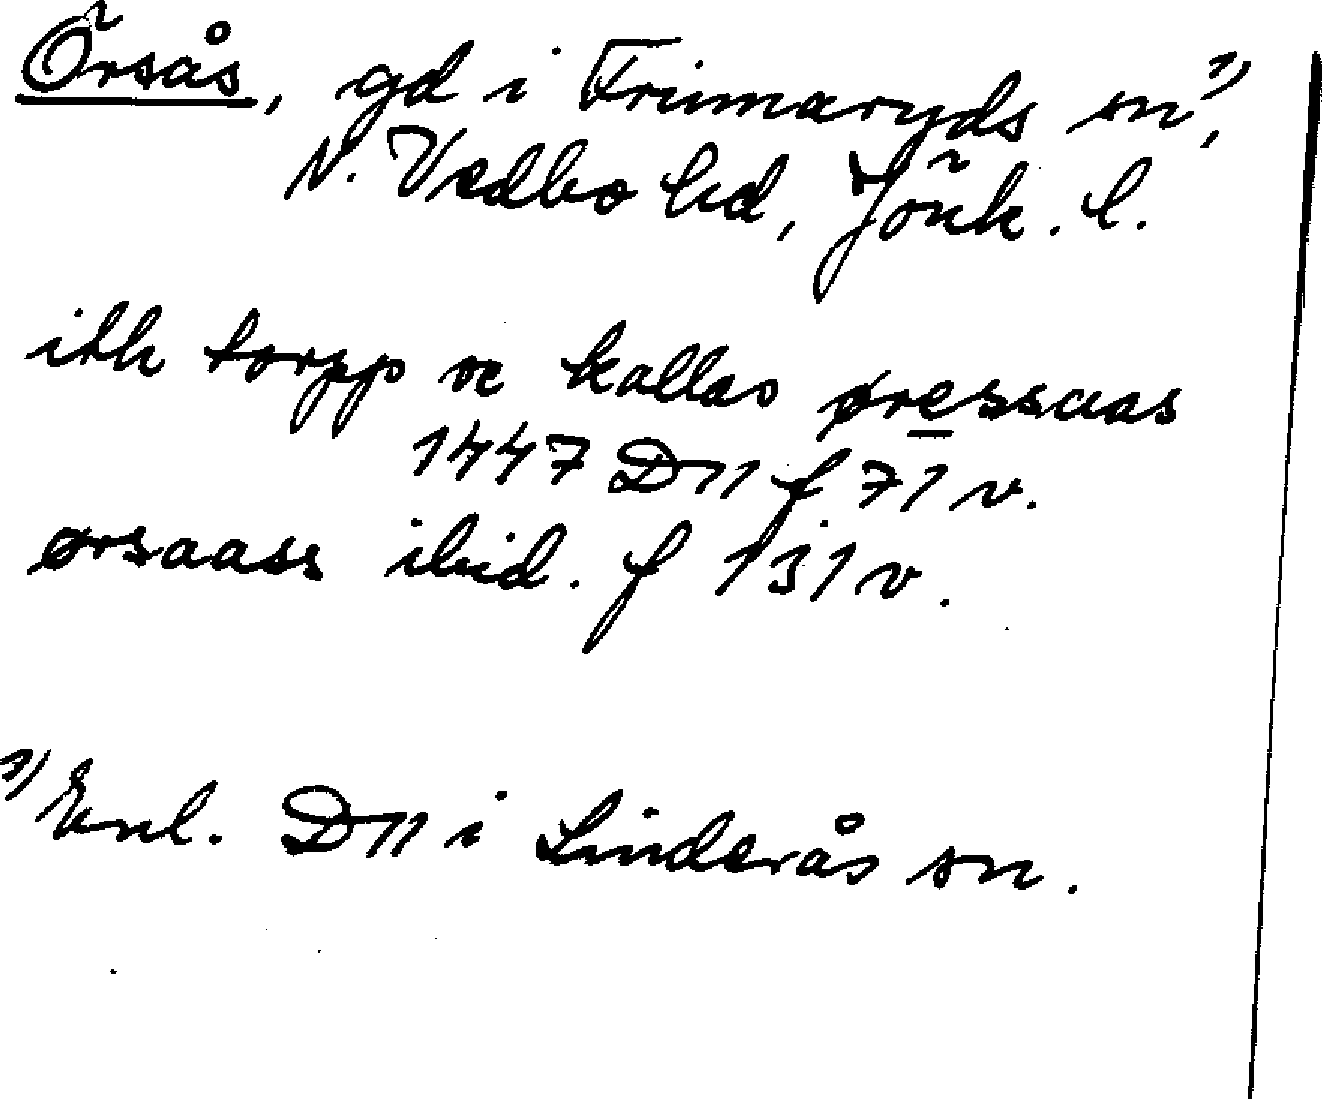 Örsås, gd i Frinnaryds sn¹⁾,
N. Vedbo hd, Jönk. l.
ith torpp oc kallas øressaas
1447 D11 f 71 v.
ørsaass ibid. f 131 v.
¹⁾ Enl. D11 i Linderås sn.